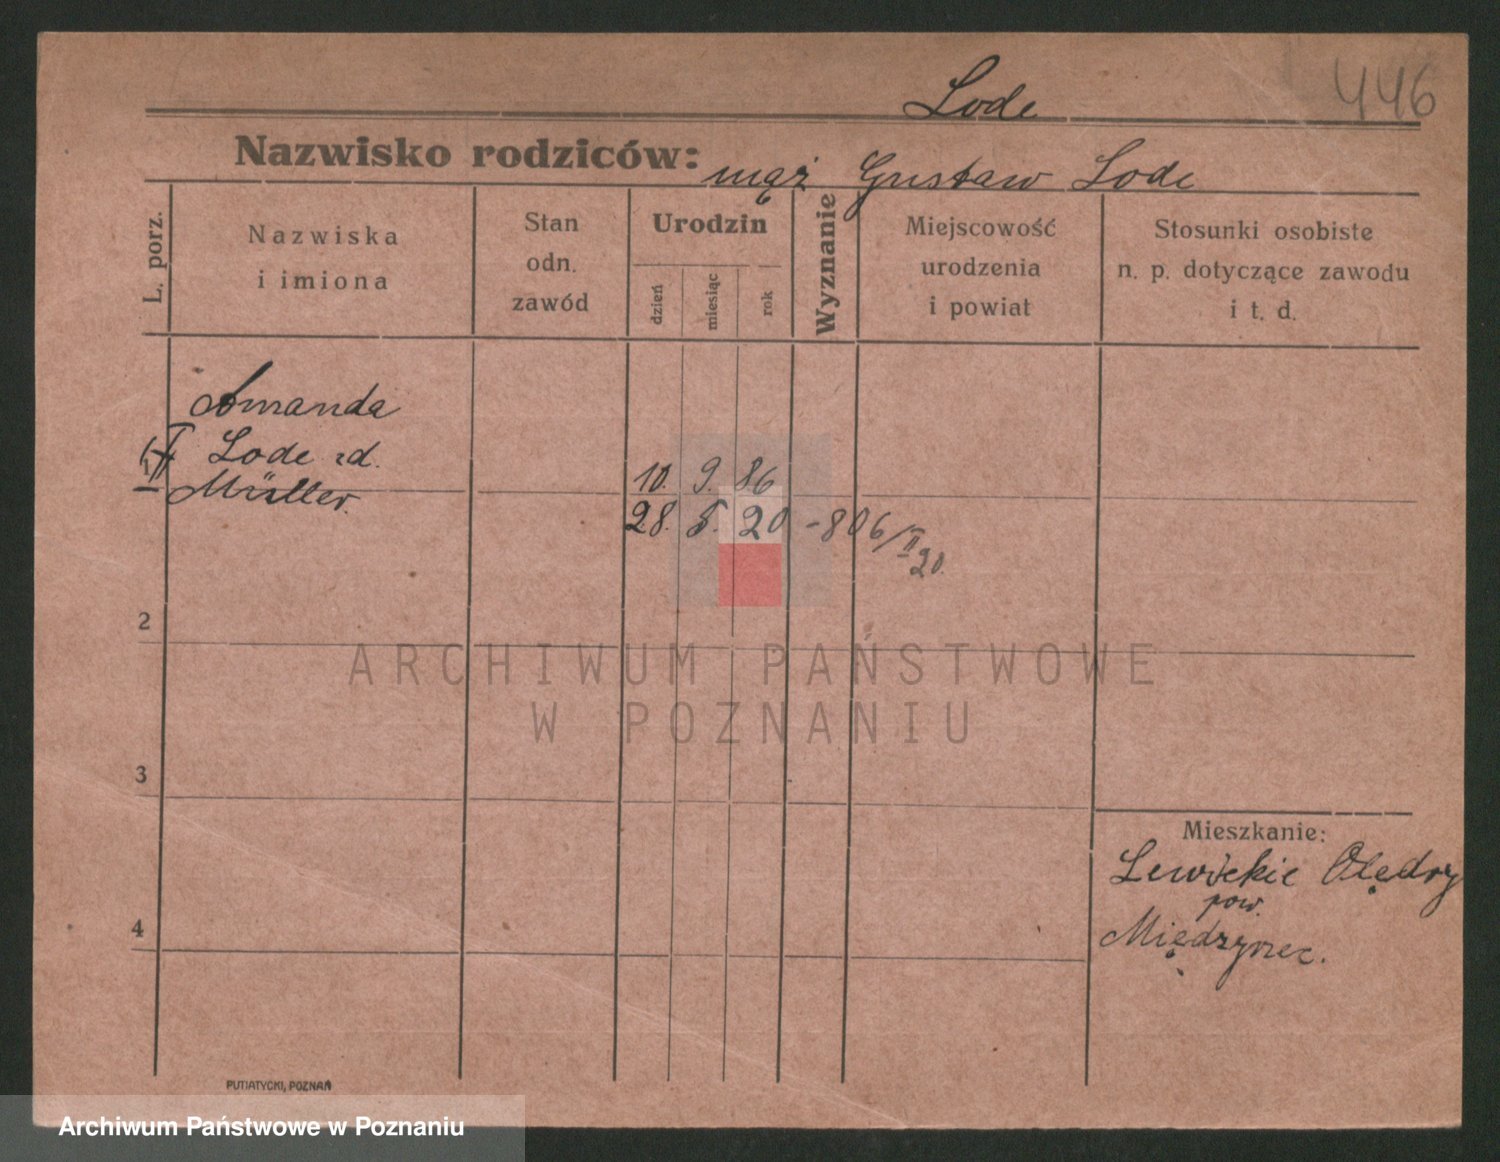 Lode
446
Nazwisko rodziców: mąż Gustaw Lode
L. porz.
Nazwiska
i imiona
Stan
odn.
zawód
Urodzin
dzień
miesiąc
rok
Wyznanie
Miejscowość
urodzenia
i powiat
Stosunki osobiste
n. p. dotyczące zawodu
i t. d.
Amanda
Lode zd.
Müller.
10. 9. 86
28. 5. 20 -806/II 20.
2
3
4
Mieszkanie:
Lewickie Olędry
pow.
Międzyrzec.
ARCHIWUM PAŃSTWOWE
W POZNANIU
PUTIATYCKI, POZNAŃ
Archiwum Państwowe w Poznaniu